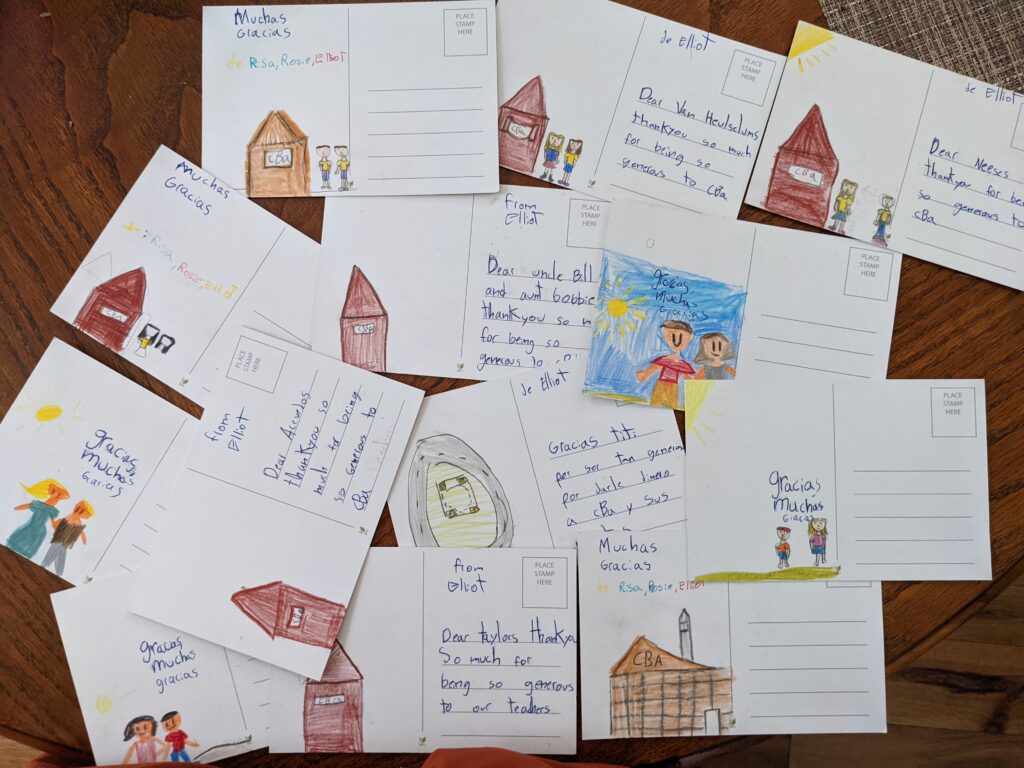 Muchas
Gracias
de Risa, Rosie, Elliot
CBa
PLACE
STAMP
HERE
de Elliot
PLACE
STAMP
HERE
Dear Van
thankyou so much
for being so
generous to CBa
CBa
de Elliot
Dear Neeses
thankyou for be
so generous to
CBa
CBA
Muchas
Gracias
Risa,
Rosie, Elliot
CBA
from
Elliot
PLACE
STAMP
HERE
Dear uncle Bill
and aunt bobbie
thankyou so m
for being so
generous to
CBA
gracias
Muchas
Gracias
PLACE
STAMP
HERE
gracias,
muchas
Gracias
PLACE
STAMP
HERE
from
Elliot
Dear
thankyou so
much for being
so generous to
CBa
CBa
de Elliot
Gracias titi
por ser tan generos
por darle dinero
a CBa y sus
gracias
muchas
Gracias
PLACE
STAMP
HERE
gracias,
muchas
gracias
from
Elliot
PLACE
STAMP
HERE
Dear taylors thankyou
So much for
being so generous
to our teachers.
CBA
Muchas
Gracias
de Risa, Rosie, Elliot
CBA